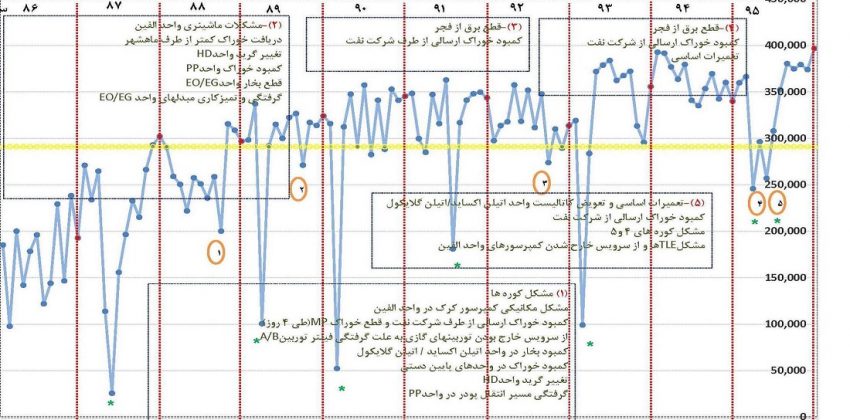 ۸۶ ۸۷ ۸۸ ۸۹ ۹۰ ۹۱ ۹۲ ۹۳ ۹۴ ۹۵
(۲)-مشکلات ماشینری واحد الفین
دریافت خوراک کمتر از طرف ماهشهر
تغییر گرید واحدHD
کمبود خوراک واحدPP
قطع بخار واحدEO/EG
گرفتگی و تمیزکاری مبدلهای واحد EO/EG
(۳)-قطع برق از فجر
کمبود خوراک ارسالی از طرف شرکت نفت
(۴)-قطع برق از فجر
کمبود خوراک ارسالی از شرکت نفت
تعمیرات اساسی
400,000
350,000
300,000
250,000
200,000
150,000
100,000
50,000
0
۱
۲
۳
۴
۵
(۵)-تعمیرات اساسی و تعویض کاتالیست واحد اتیلن اکساید/اتیلن گلایکول
کمبود خوراک ارسالی از شرکت نفت
مشکل کوره های ۴ و۵
مشکلTLEها و از سرویس خارج شدن کمپرسورهای واحد الفین
(۱) مشکل کوره ها
مشکل مکانیکی کمپرسور کرک در واحد الفین
کمبود خوراک ارسالی از طرف شرکت نفت و قطع خوراک MP(طی ۴ روز)
از سرویس خارج بودن توربینهای گازی به علت گرفتگی فیلتر توربینA/B
کمبود بخار در واحد اتیلن اکساید / اتیلن گلایکول
کمبود خوراک در واحدهای پایین دستی
تغییر گرید واحدHD
گرفتگی مسیر انتقال پودر در واحدPP